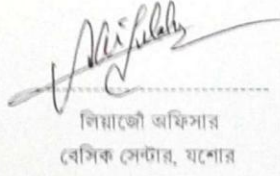 লিয়াজোঁ অফিসার
বেসিক সেন্টার, যশোর